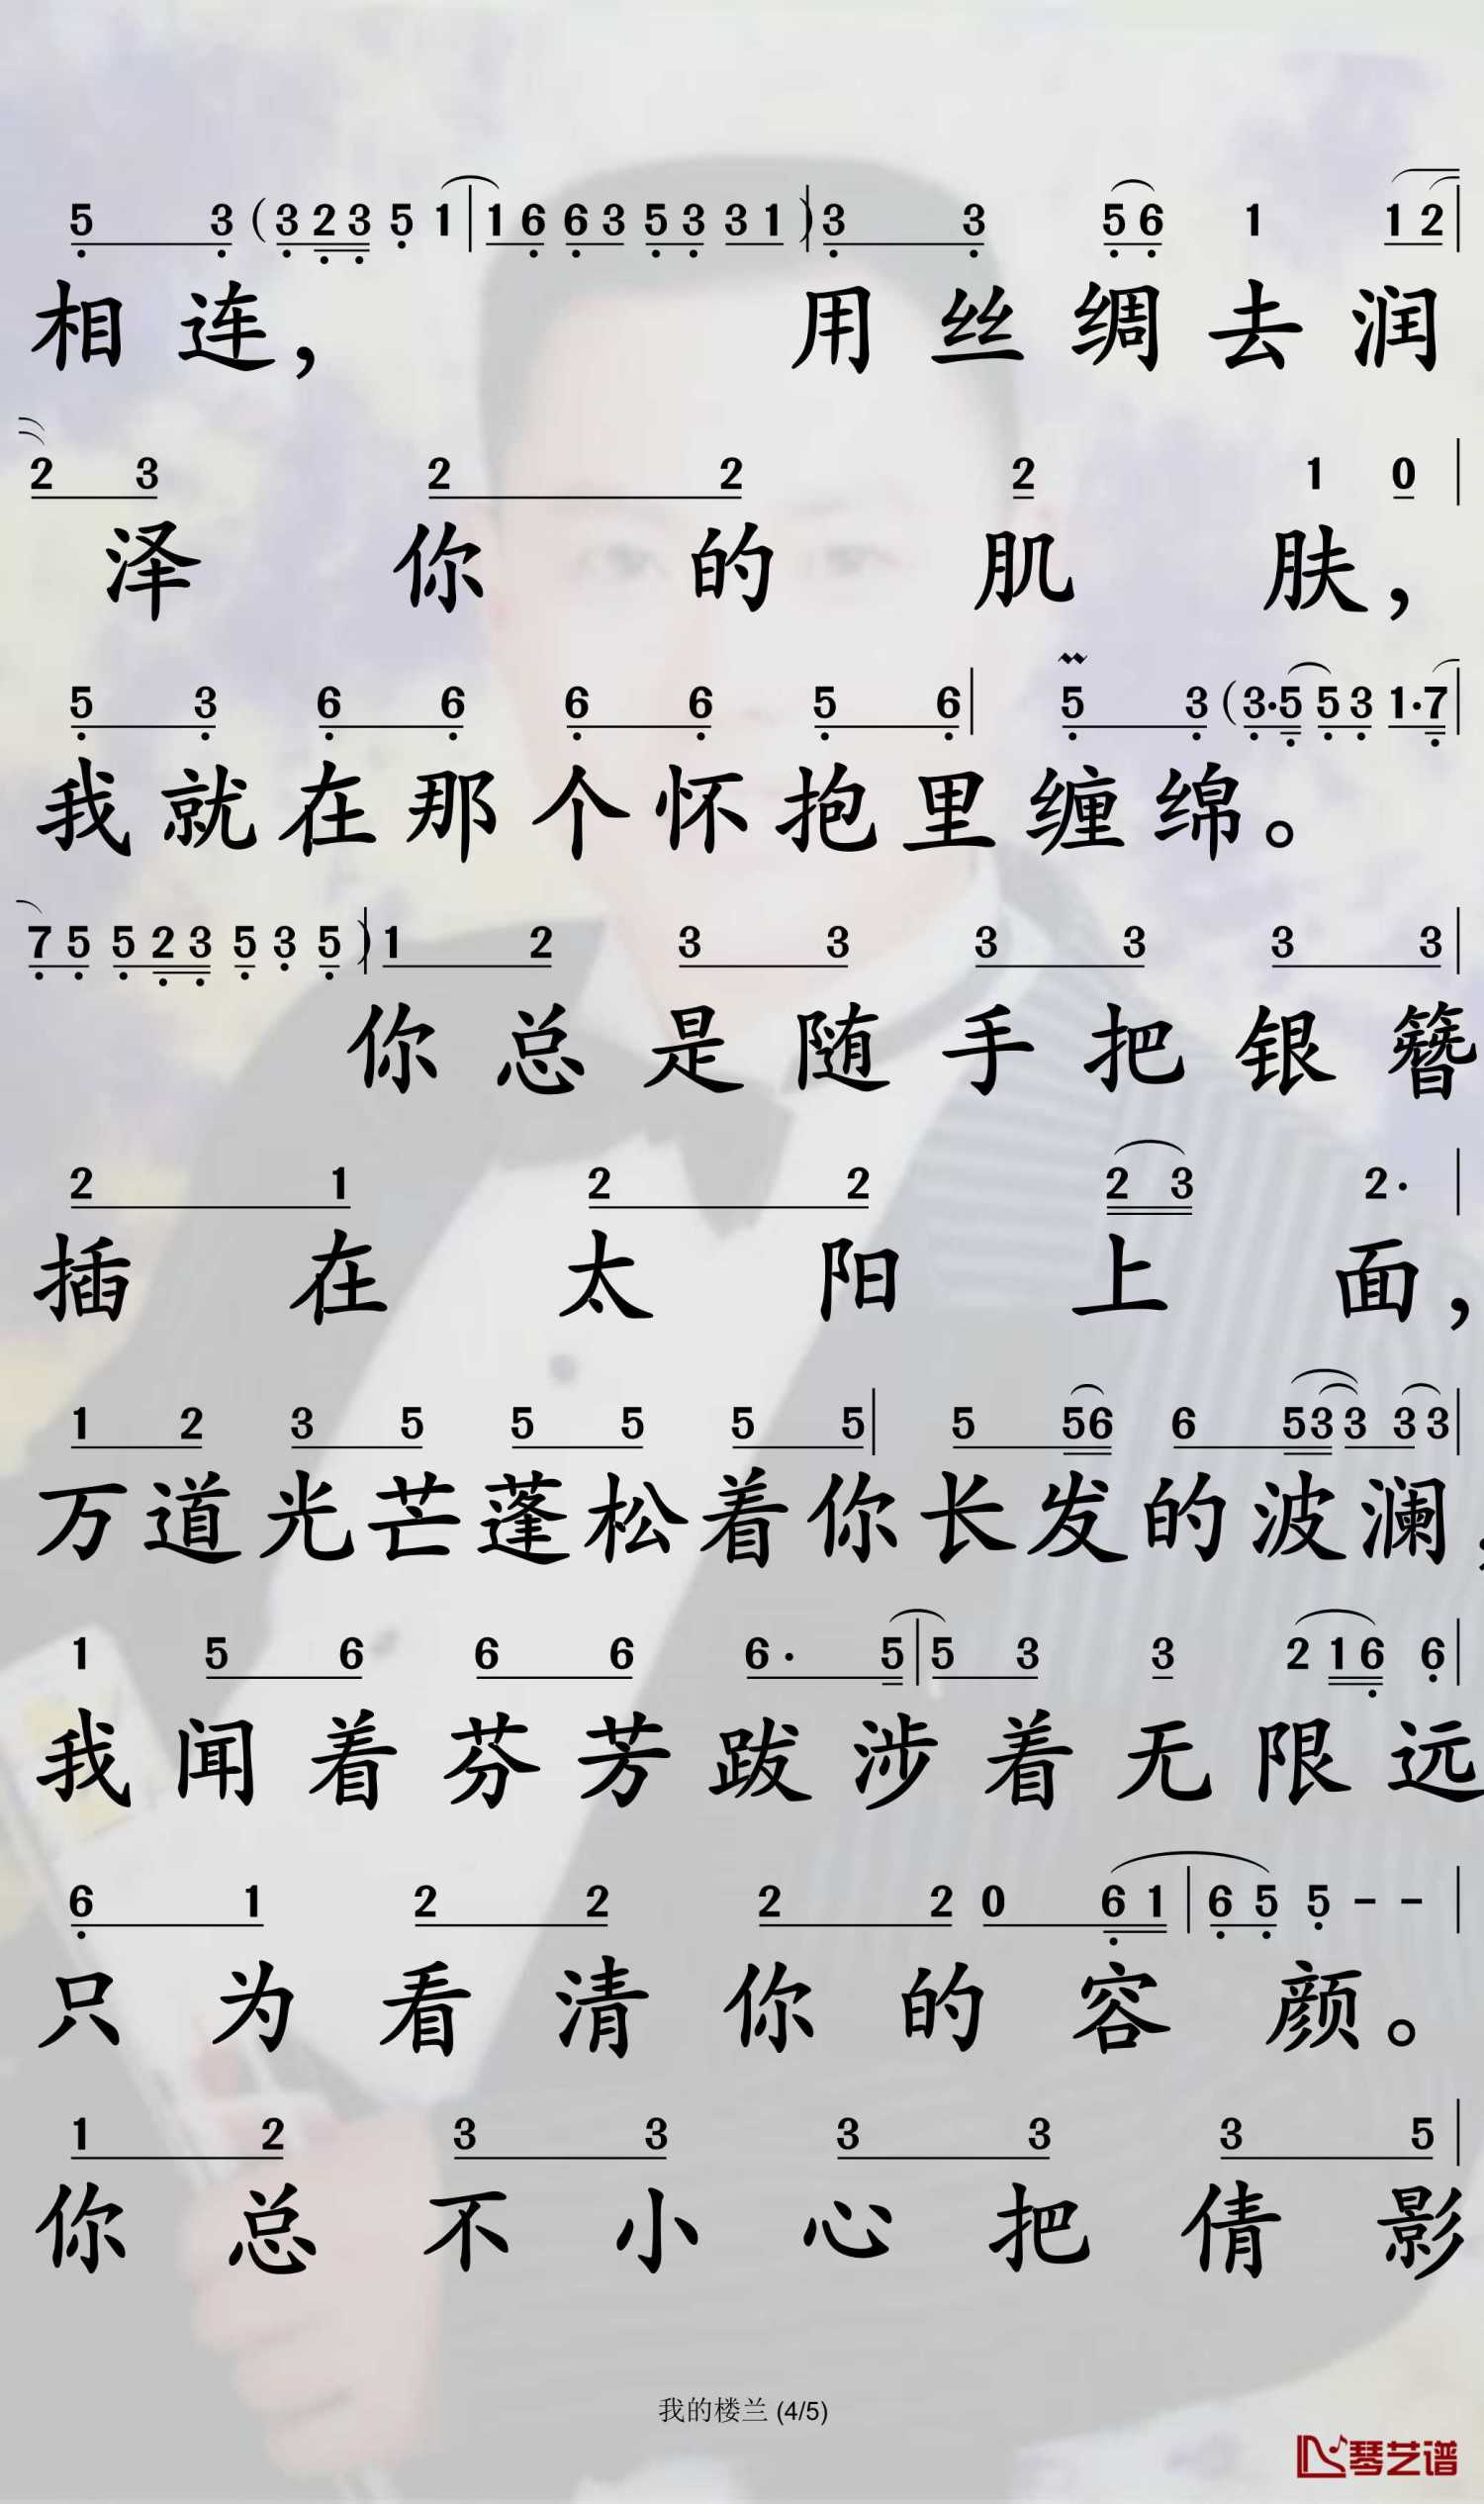 5 3 (3 2 3 5 1 | 1 6 6 3 5 3 3 1 ) | 3 3 5 6 1 1 2 |
相连， 用丝绸去润
2 3 2 2 2 1 0 |
泽你的肌肤，
5 3 6 6 6 6 5 6 | 5 3 (3· 5 5 3 1· 7 |
我就在那个怀抱里缠绵。
7 5 5 2 3 5 3 5 ) | 1 2 3 3 3 3 3 3 |
你总是随手把银簪
2 1 2 2 2 3 2· |
插在太阳上面，
1 2 3 5 5 5 5 5 | 5 5 6 6 5 3 3 3 3 |
万道光芒蓬松着你长发的波澜，
1 5 6 6 6 6· 5 | 5 3 3 2 1 6 6 |
我闻着芬芳跋涉着无限远
6 1 2 2 2 2 0 6 1 | 6 5 5 - - |
只为看清你的容颜。
1 2 3 3 3 3 3 5 |
你总不小心把倩影
我的楼兰 (4/5)
琴艺谱